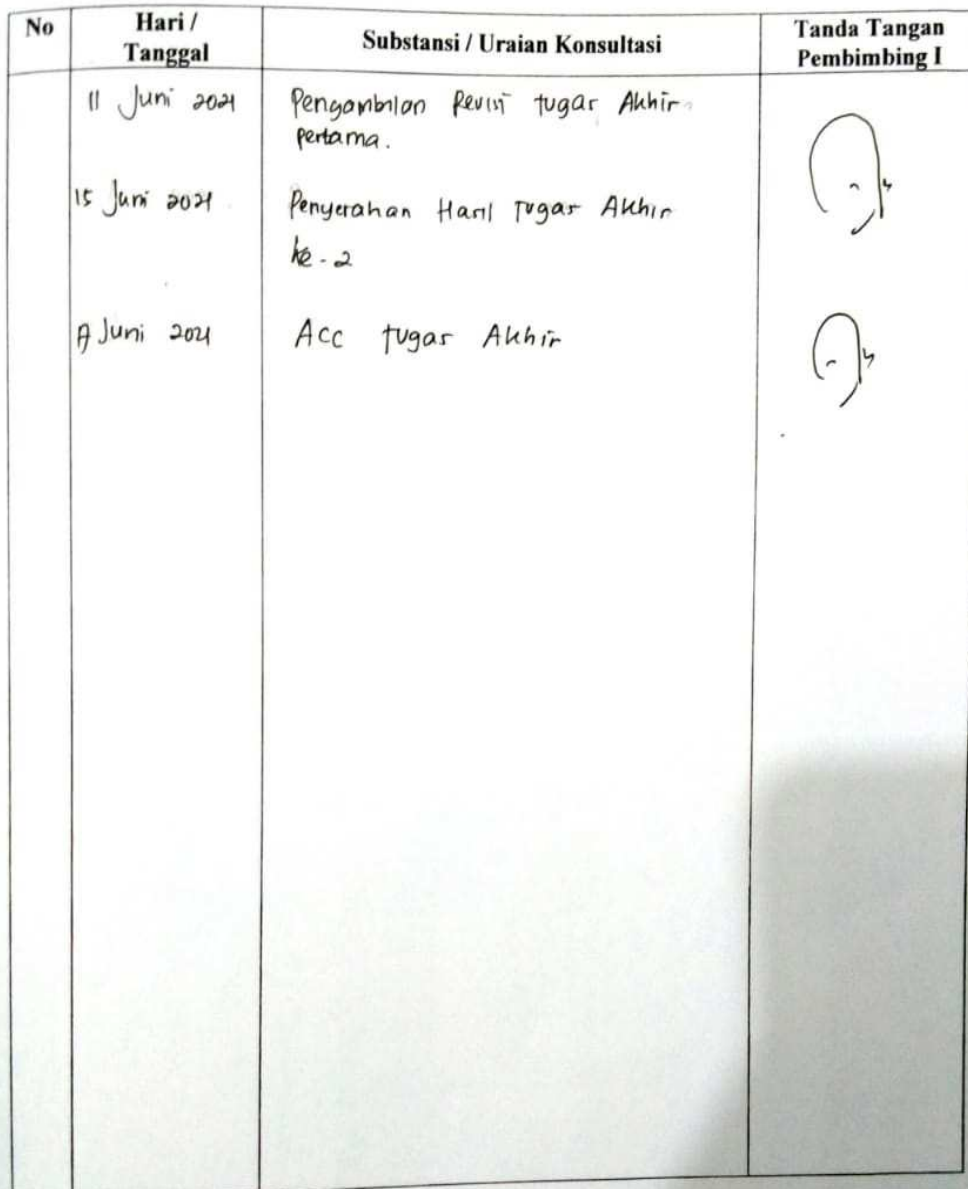 No
Hari /
Tanggal
Substansi / Uraian Konsultasi
Tanda Tangan
Pembimbing I
11 Juni 2021
Pengambilan Revisi tugas Akhir
pertama.
15 Juni 2021
Penyerahan Hasil tugas Akhir
ke-2
Juni 2021
Acc tugas Akhir